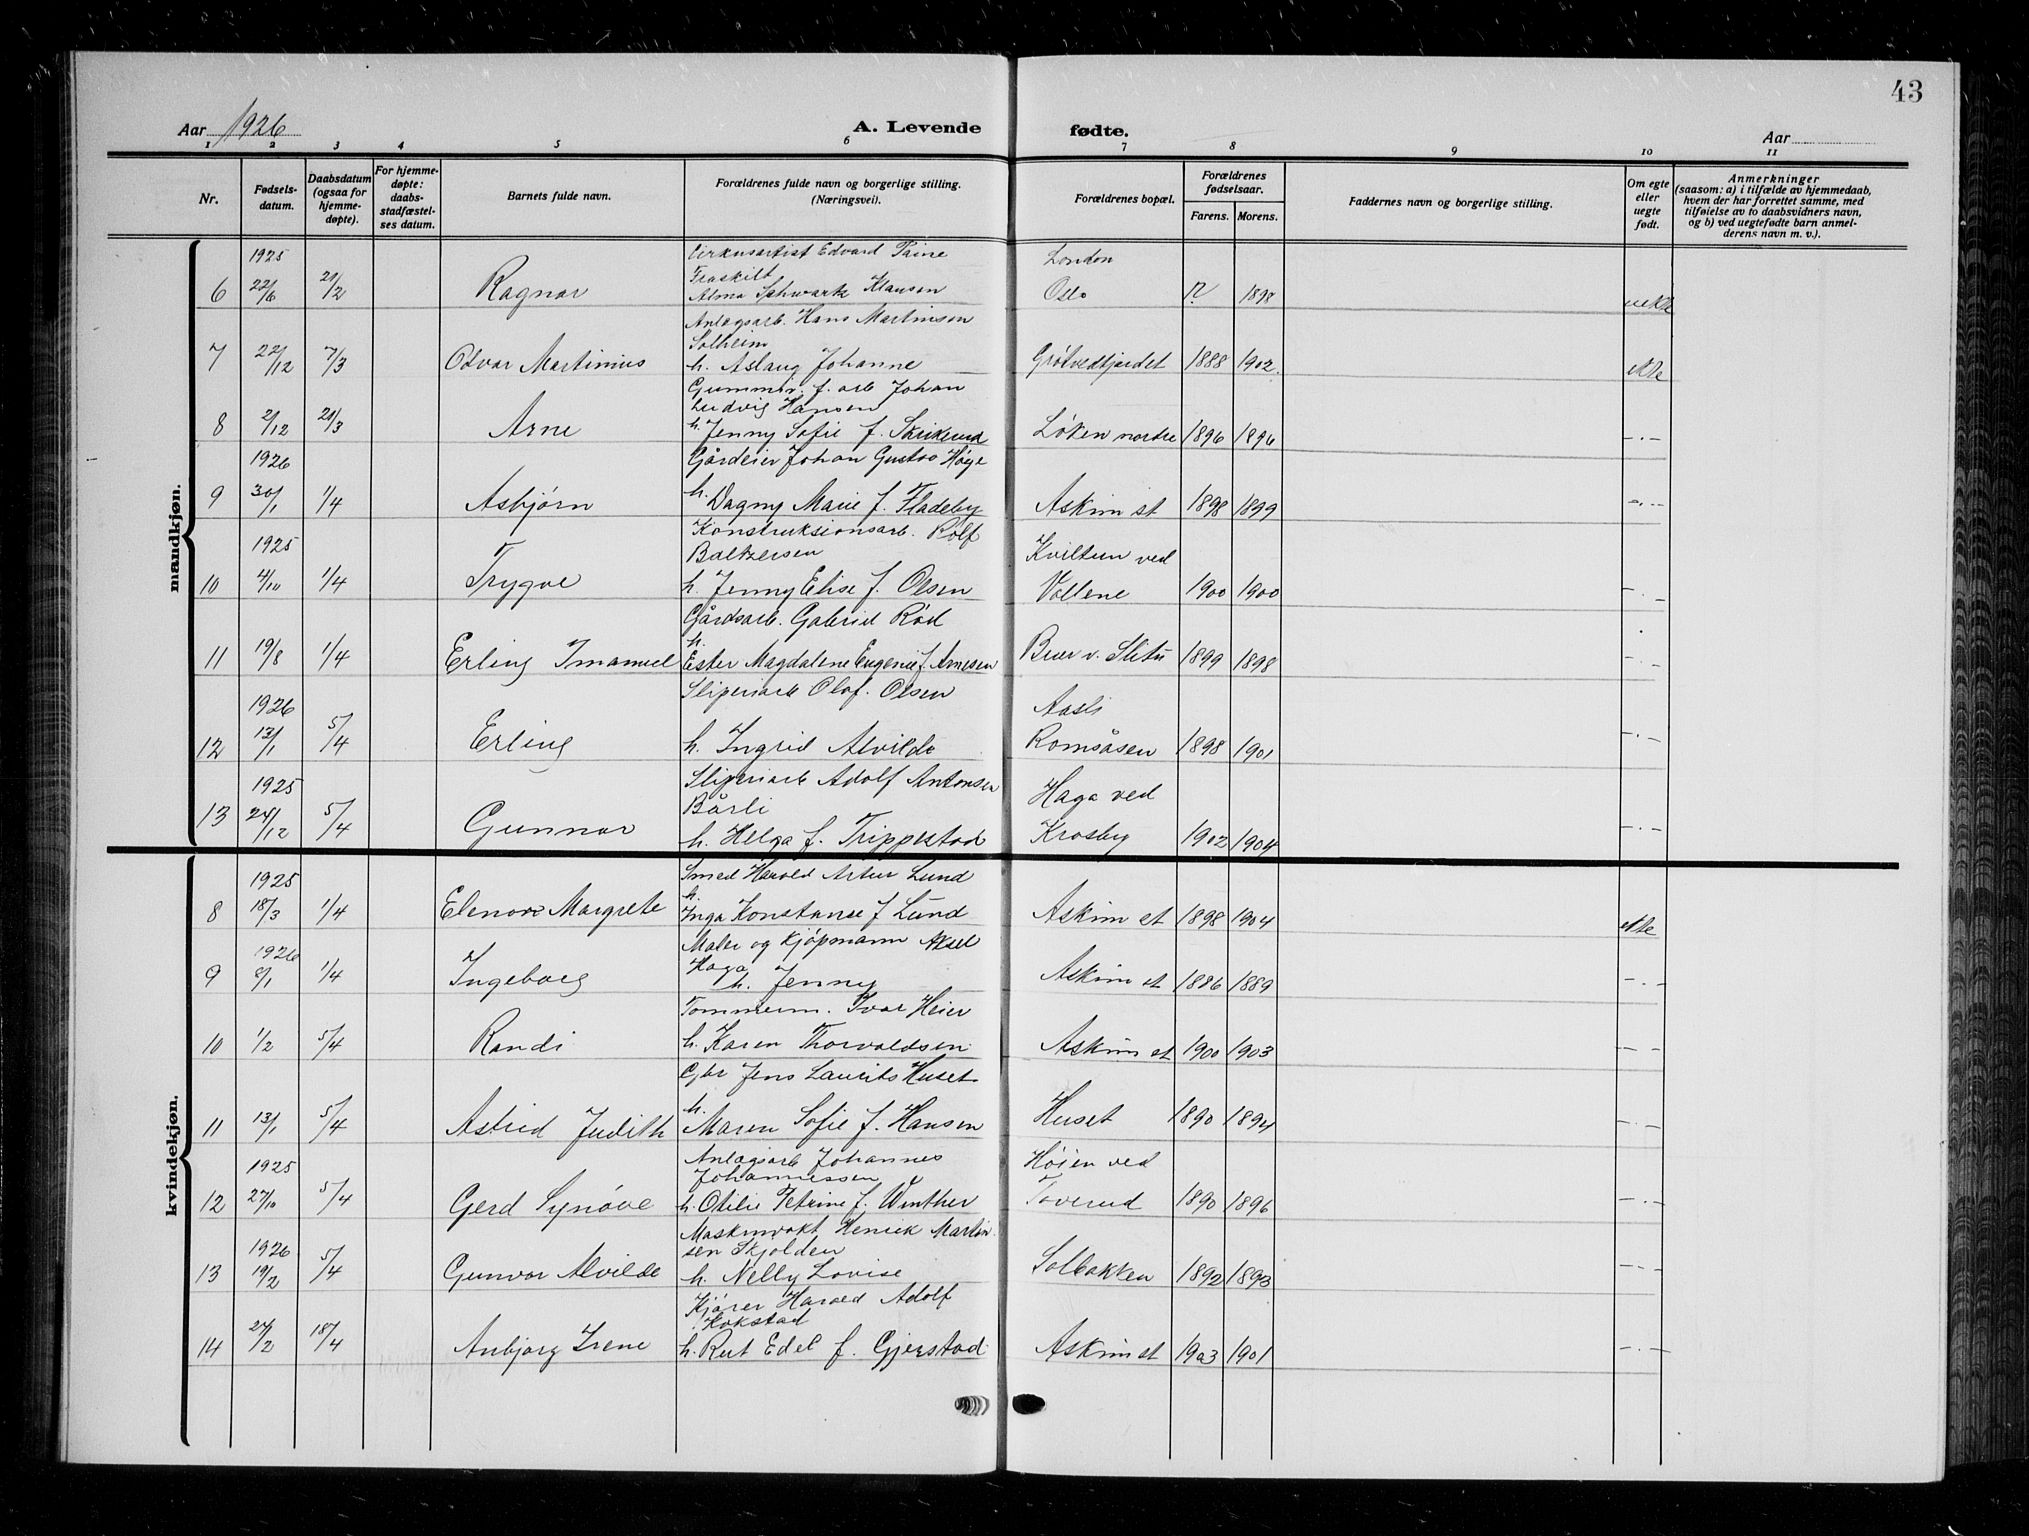 43
Aar 1926
A. Levende
fødte.
Aar
1 2 3 4 5 6 7 8 9 10 11
Nr.
Fødsels-
datum.
Daabsdatum
(ogsaa for
hjemme-
døpte).
For hjemme-
døpte:
daabs-
stadfæstel-
ses datum.
Barnets fulde navn.
Forældrenes fulde navn og borgerlige stilling.
(Næringsvei).
Forældrenes bopæl.
Forældrenes
fødselsaar.
Farens. Morens.
Faddernes navn og borgerlige stilling.
Om egte
eller
uegte
født.
Anmerkninger
(saasom: a) i tilfælde av hjemmedaab,
hvem der har forrettet samme, med
tilføielse av to daabsvidners navn,
og b) ved uegtefødte barn anmel-
derens navn m. v.).
mandkjøn.
1925 Cirkusartist Edvard Paine London
Fraskilt
6 22/6 21/2 Ragnar Alma Schwartz Klausen Oslo ? 1898 uekte
Anlægsarb. Hans Martinsen
Solheim
7 22/12 7/3 Odvar Martinius h. Aslaug Johanne Grøtvedtjordet 1888 1902. ekte
Gummiv. f. arb Johan
Ludvig Hansen
8 2/12 21/3 Arne h. Jenny Sofie f. Skrikerud Løken nordre 1896 1896 - . -
1926 Gårdeier Johan Gustav Høye
9 30/1 1/4 Asbjørn h. Dagny Marie f. Fladeby Askim st 1898 1899 - . -
Konstruksionsarb. Rolf
1925 Baltzersen Kviltun ved
10 4/10 1/4 Trygve h. Jenny Elise f. Olsen Vollene 1900 1900 - . -
Gårdsarb. Gabriel Rød
h.
11 19/8 1/4 Erling Imanuel Ester Magdalene Eugenie f. Arnesen v. Slitu 1899 1898 - . -
Sliperiarb Olaf. Olsen
1926 Aasli
12 13/1 5/4 Erling h. Ingrid Alvilde Romsåsen 1898 1901 - . -
1925 Sliperiarb Adolf Antonsen
Bårli Haga ved
13 24/12 5/4 Gunnar h. Helga f. Trippestad Krosby 1902 1904 - . -
kvindekjøn.
1925 Smed Harald Artur Lund
h.
8 18/3 1/4 Elenore Margrete Inga Konstanse f Lund Askim st 1898 1904 ekte
1926 Maler og kjøpmann Aksel
Haga
9 8/1 1/4 Ingeborg h. Jenny Askim st 1886 1889 - . -
Tømmerm. Ivar Heier
10 1/2 5/4 Randi h. Karen Thorvaldsen Askim st 1900 1903 - -
Gbr Jens Laurits Huset
11 13/1 5/4 Astrid Judith h. Maren Sofie f. Hansen Huset 1890 1894 - . -
Anlægsarb Johannes
1925 Johannessen Høien ved
12 27/10 5/4 Gerd Synøve h. Otilie Petrine f. Winther Toverud 1890 1896 - . -
Maskinvakt Henrik Martin-
1926 sen Skjolden
13 19/2 5/4 Gunvor Alvilde h. Nelly Lovise Solbakken 1892 1893 - . -
Kjører Harald Adolf
Kokstad
14 24/2 18/4 Anbjørg Irene h. Rut Edel f. Gjerstad Askim st 1903 1901 - . -